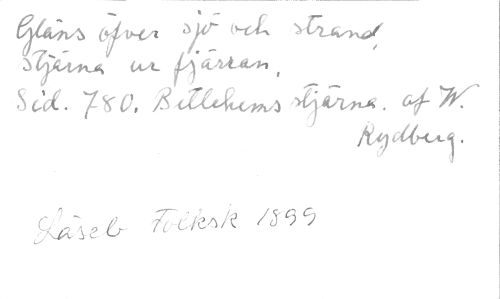 Gläns öfver sjö och strand,
stjärna ur fjärran,
Sid. 780. Betlehems stjärna. af W.
Rydberg.
Läseb Folksk 1899